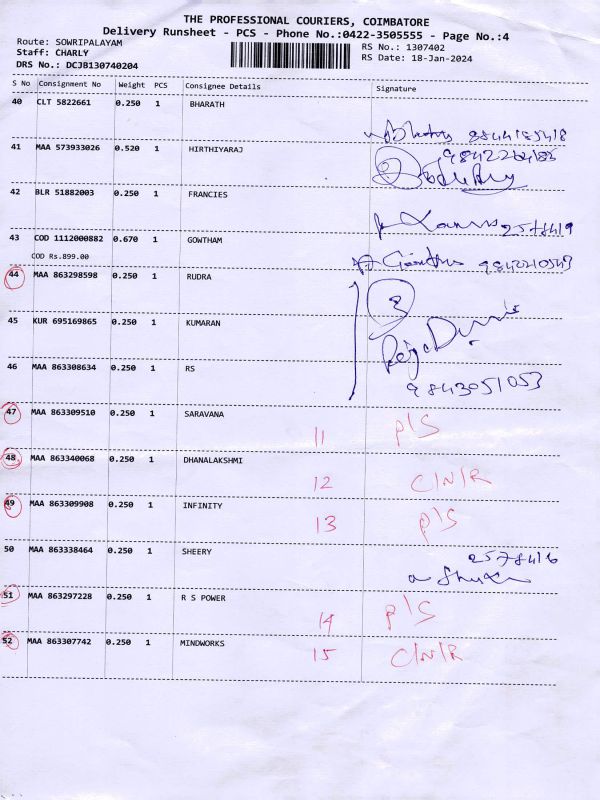 THE PROFESSIONAL COURIERS, COIMBATORE
Delivery Runsheet - PCS - Phone No.:0422-3505555 - Page No.:4
Route: SOWRIPALAYAM
Staff: CHARLY
DRS No.: DCJB130740204
RS No.: 1307402
RS Date: 18-Jan-2024
S No Consignment No Weight PCS Consignee Details Signature
40 CLT 5822661 0.250 1 BHARATH
9844185418
41 MAA 573933026 0.520 1 HIRTHIYARAJ
42 BLR 51882003 0.250 1 FRANCIES
2578419
43 COD 1112000882 0.670 1 GOWTHAM
COD Rs.899.00
9842210543
44 MAA 863298598 0.250 1 RUDRA
3
45 KUR 695169865 0.250 1 KUMARAN
46 MAA 863308634 0.250 1 RS
9843051053
47 MAA 863309510 0.250 1 SARAVANA
11 P/S
48 MAA 863340068 0.250 1 DHANALAKSHMI
12 C/N/R
49 MAA 863309908 0.250 1 INFINITY
13 P/S
50 MAA 863338464 0.250 1 SHEERY
2578416
51 MAA 863297228 0.250 1 R S POWER
14 P/S
52 MAA 863307742 0.250 1 MINDWORKS
15 C/N/R